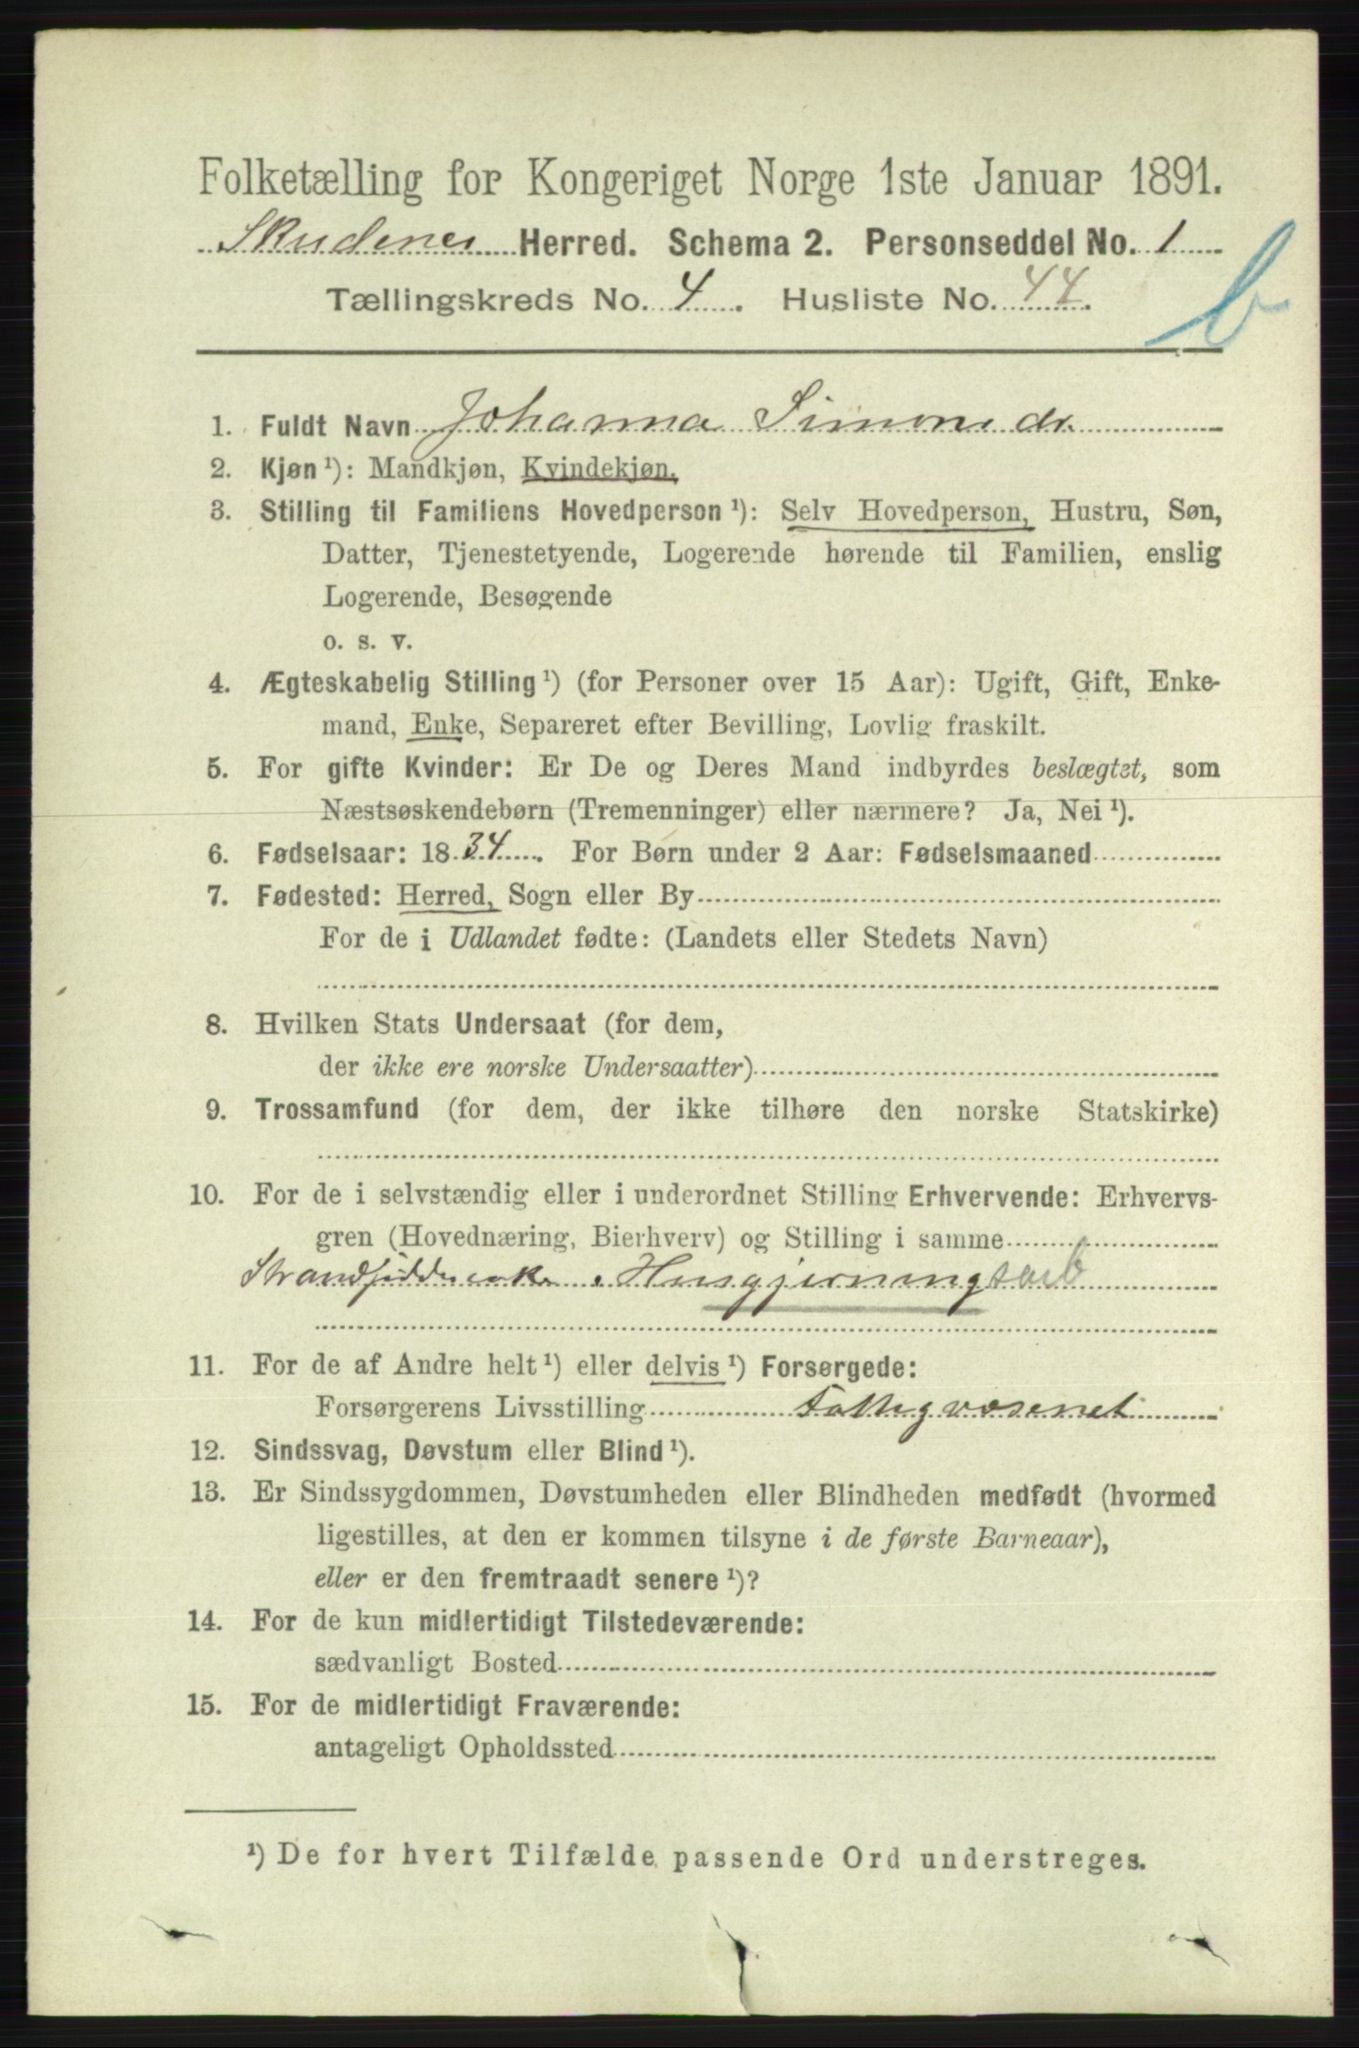 Folketælling for Kongeriget Norge 1ste Januar 1891.
Skudenes Herred. Schema 2. Personseddel No. 1
Tællingskreds No. 4. Husliste No. 44.
b
1. Fuldt Navn Johanna Simonsdr.
2. Kjøn ¹): Mandkjøn, Kvindekjøn.
3. Stilling til Familiens Hovedperson ¹): Selv Hovedperson, Hustru, Søn,
Datter, Tjenestetyende, Logerende hørende til Familien, enslig
Logerende, Besøgende
o. s. v.
4. Ægteskabelig Stilling ¹) (for Personer over 15 Aar): Ugift, Gift, Enke-
mand, Enke, Separeret efter Bevilling, Lovlig fraskilt.
5. For gifte Kvinder: Er De og Deres Mand indbyrdes beslægtet, som
Næstsøskendebørn (Tremenninger) eller nærmere? Ja, Nei ¹).
6. Fødselsaar: 1834. For Børn under 2 Aar: Fødselsmaaned
7. Fødested: Herred, Sogn eller By
For de i Udlandet fødte: (Landets eller Stedets Navn)
8. Hvilken Stats Undersaat (for dem,
der ikke ere norske Undersaatter)
9. Trossamfund (for dem, der ikke tilhøre den norske Statskirke)
10. For de i selvstændig eller i underordnet Stilling Erhvervende: Erhvervs-
gren (Hovednæring, Bierhverv) og Stilling i samme
Strandsidderenke. Husgjerningsarb
11. For de af Andre helt ¹) eller delvis ¹) Forsørgede:
Forsørgerens Livsstilling Fattigvæsenet
12. Sindssvag, Døvstum eller Blind ¹).
13. Er Sindssygdommen, Døvstumheden eller Blindheden medfødt (hvormed
ligestilles, at den er kommen tilsyne i de første Barneaar),
eller er den fremtraadt senere ¹)?
14. For de kun midlertidigt Tilstedeværende:
sædvanligt Bosted
15. For de midlertidigt Fraværende:
antageligt Opholdssted
¹) De for hvert Tilfælde passende Ord understreges.